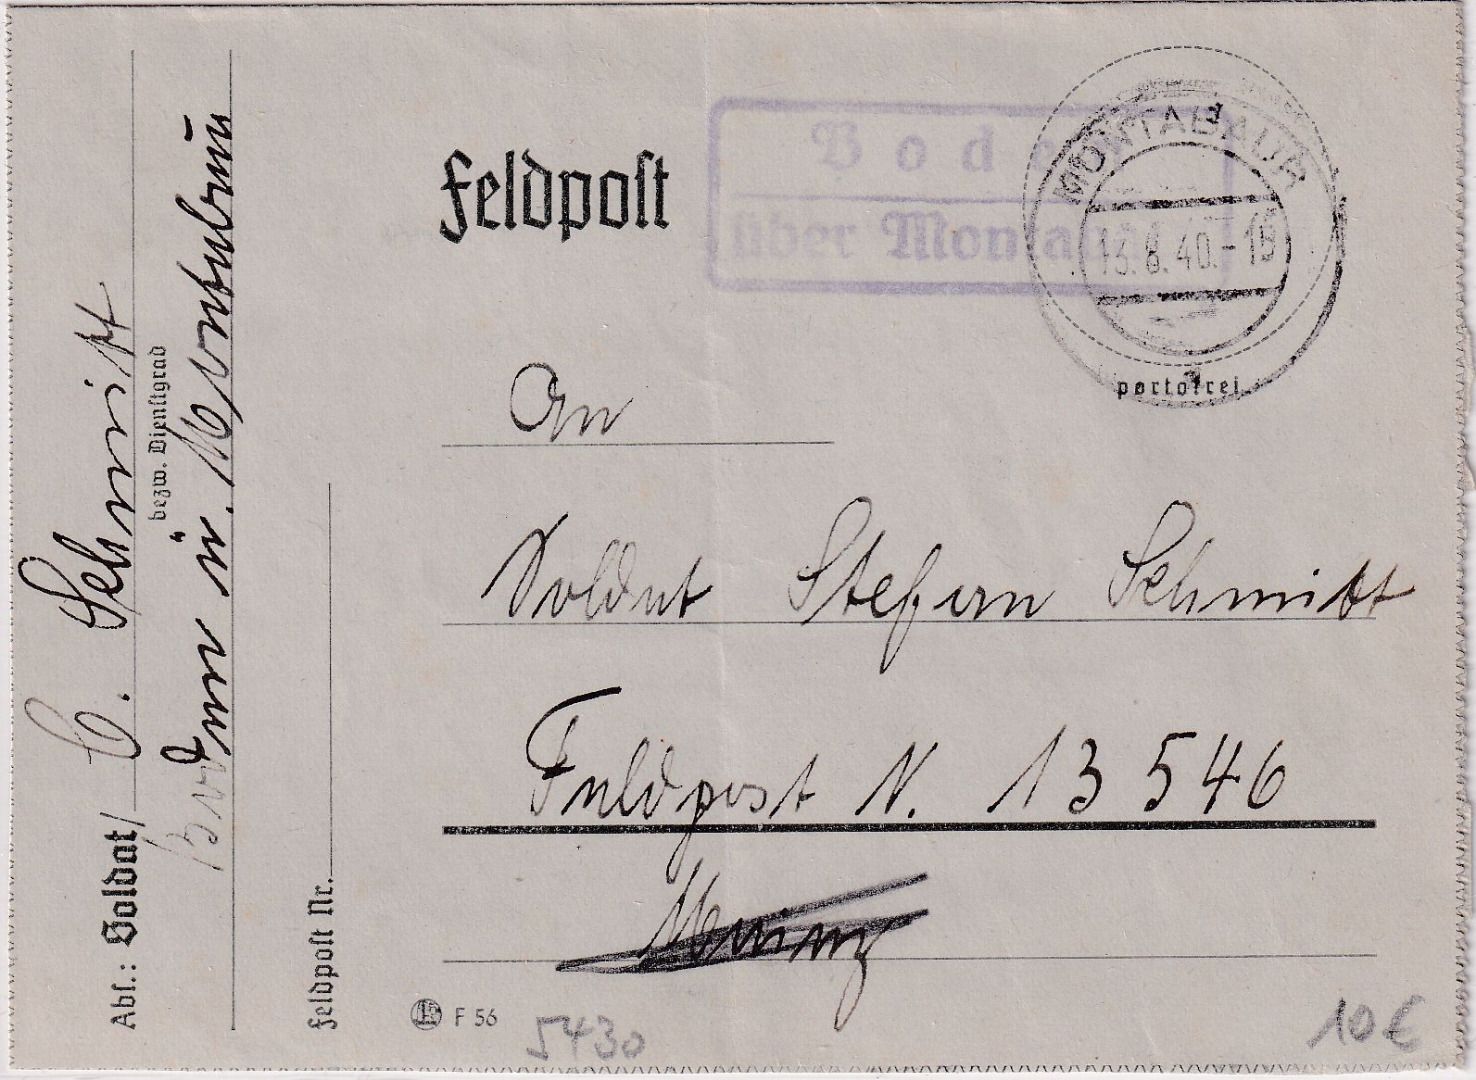 Feldpost
Boden
über Montabaur
MONTABAUR
13.8.40.-18
a
portofrei
An
Soldat Stefan Schmitt
Feldpost N. 13546
Mainz
F 56
5430
10€
Abs.: Soldat/ C. Schmitt
bezw. Dienstgrad
Boden ü. Montabaur
Feldpost Nr.